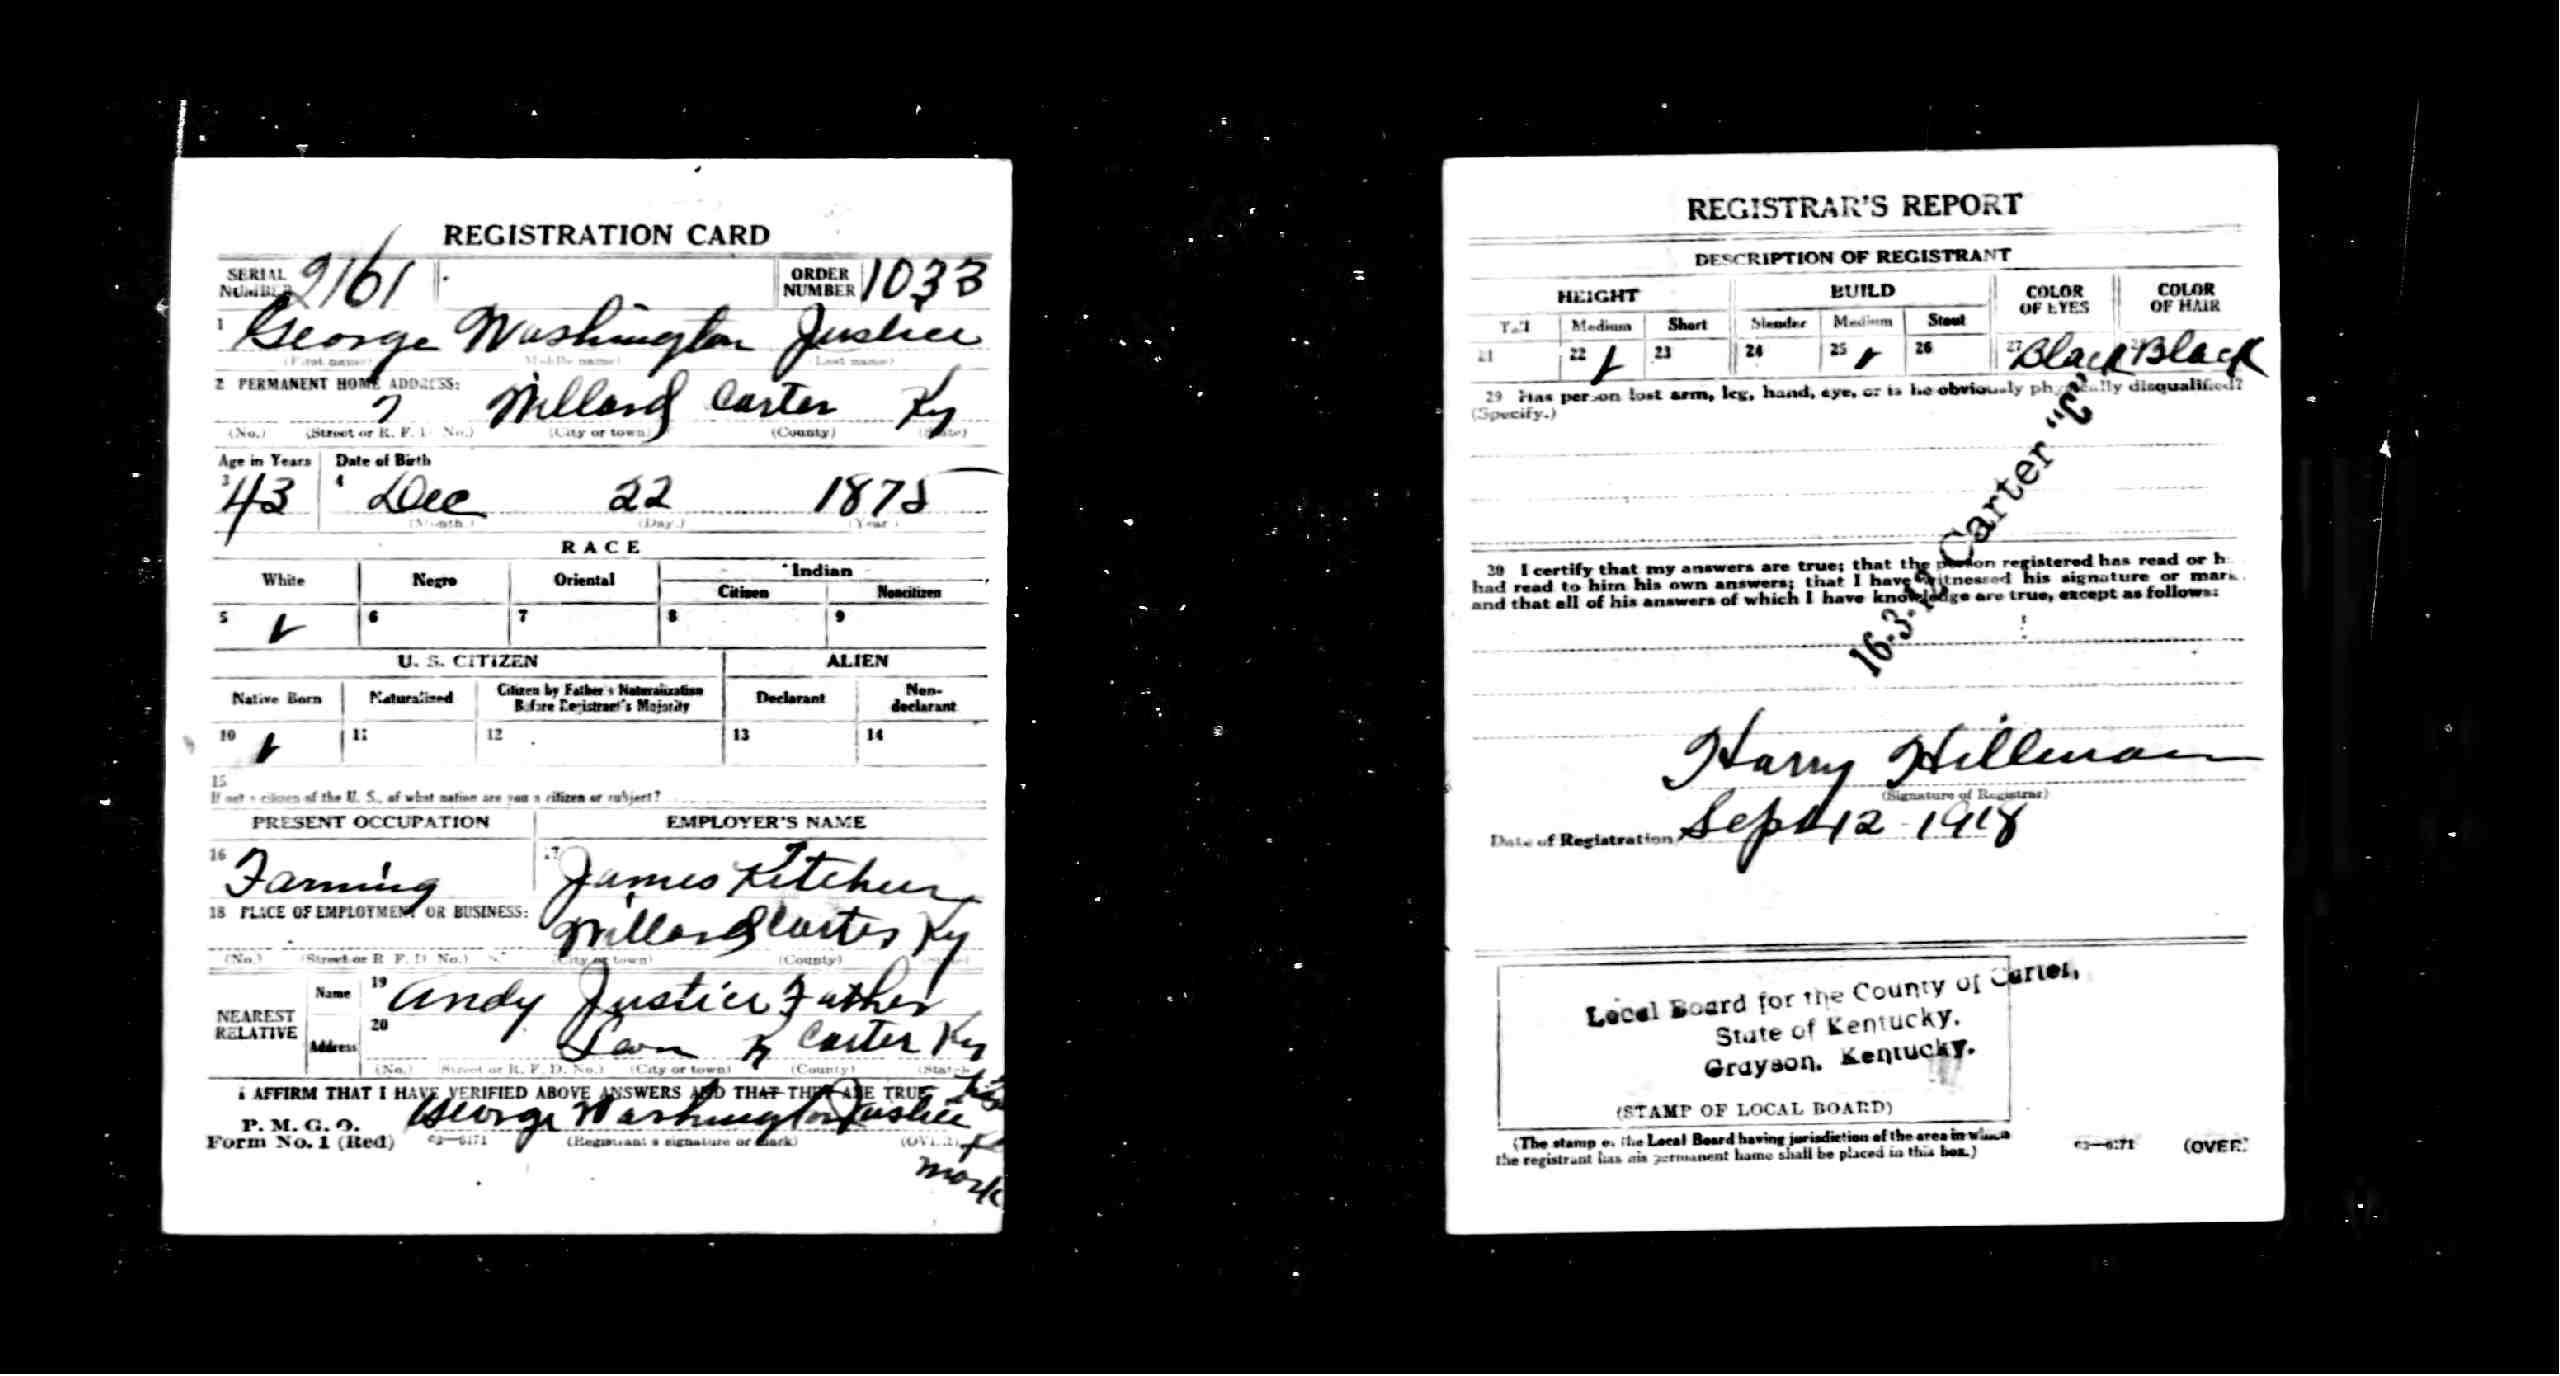 REGISTRATION CARD
SERIAL NUMBER 2161 ORDER NUMBER 1033
1 George Washington Justice
(First name) (Middle name) (Last name)
2 PERMANENT HOME ADDRESS:
Willard Carter Ky
(No.) (Street or R. F. D. No.) (City or town) (County) (State)
Age in Years Date of Birth
3 43 4 Dec 22 1875
(Month.) (Day.) (Year.)
RACE
White Negro Oriental Indian
Citizen Noncitizen
5 6 7 8 9
U. S. CITIZEN ALIEN
Native Born Naturalized Citizen by Father's Naturalization Before Registrant's Majority Declarant Non-declarant
10 11 12 13 14
15
If not a citizen of the U. S., of what nation are you a citizen or subject?
PRESENT OCCUPATION EMPLOYER'S NAME
16 Farming 17 James Kitchen
18 PLACE OF EMPLOYMENT OR BUSINESS:
Willard Carter Ky
(No.) (Street or R. F. D. No.) (City or town) (County) (State)
NEAREST RELATIVE Name 19 Andy Justice Father
Address 20 Leon Carter Ky
(No.) (Street or R. F. D. No.) (City or town) (County) (State)
I AFFIRM THAT I HAVE VERIFIED ABOVE ANSWERS AND THAT THEY ARE TRUE
P. M. G. O.
Form No. 1 (Red) George Washington Justice
03—6171 (Registrant's signature or mark) (OVER)
mark
REGISTRAR'S REPORT
DESCRIPTION OF REGISTRANT
HEIGHT BUILD COLOR OF EYES COLOR OF HAIR
Tall Medium Short Slender Medium Stout
21 22 23 24 25 26 27 Black 28 Black
29 Has person lost arm, leg, hand, eye, or is he obviously physically disqualified?
(Specify.)
16-3-12 Carter "C"
30 I certify that my answers are true; that the person registered has read or has
had read to him his own answers; that I have witnessed his signature or mark,
and that all of his answers of which I have knowledge are true, except as follows:
Harry Hillman
(Signature of Registrar)
Date of Registration Sept 12 - 1918
Local Board for the County of Carter,
State of Kentucky.
Grayson, Kentucky.
(STAMP OF LOCAL BOARD)
(The stamp of the Local Board having jurisdiction of the area in which
the registrant has his permanent home shall be placed in this box.)
03—6171 (OVER)